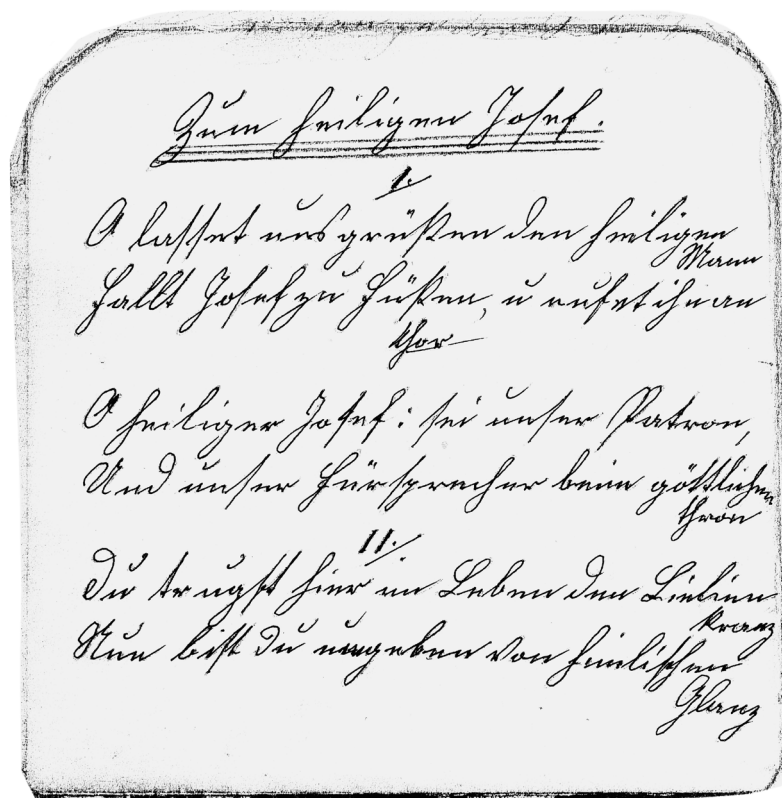 Zum heiligen Josef.
I.
O lasset uns grüßen den heiligen
Mann
Fallt Josef zu Füßen, u rufet ihn an
Chor
O heiliger Josef: sei unser Patron,
Und unser Fürsprecher beim göttlichen
Thron
II.
Du trugst hier im Leben den Lielien
kranz
Nun bist du umgeben von himlischen
Glanz